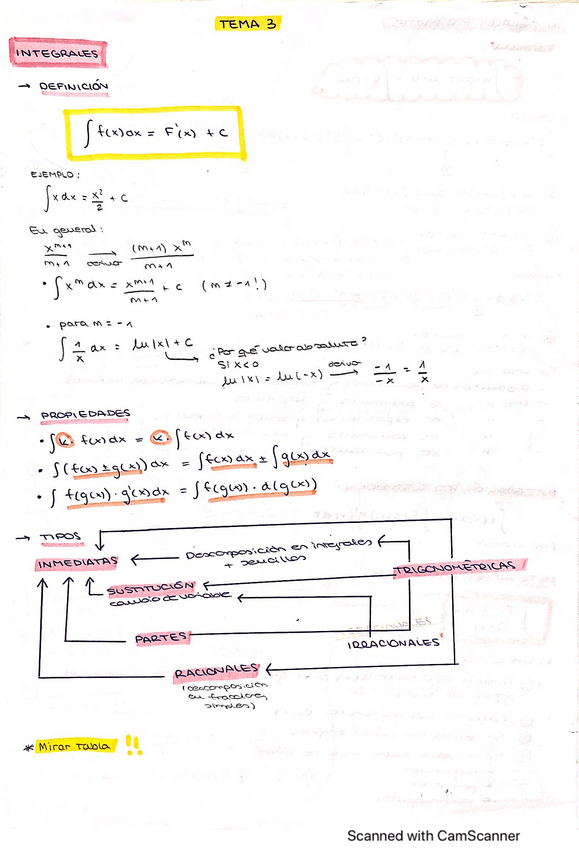 TEMA 3
INTEGRALES
→ DEFINICIÓN
∫ f(x) dx = F'(x) + C
EJEMPLO:
∫ x dx = x²/2 + C
En general:
x^(m+1)/(m+1) → derivo (m+1) x^m/(m+1)
• ∫ x^m dx = x^(m+1)/(m+1) + C (m ≠ -1!)
• para m = -1
∫ 1/x dx = ln|x| + C
¿Por qué valor absoluto?
Si x<0
ln|x| = ln(-x) → derivo -1/-x = 1/x
→ PROPIEDADES
• ∫ k · f(x) dx = k · ∫ f(x) dx
• ∫ (f(x) ± g(x)) dx = ∫ f(x) dx ± ∫ g(x) dx
• ∫ f(g(x)) · g'(x) dx = ∫ f(g(x)) · d(g(x))
→ TIPOS
INMEDIATAS ← Descomposición en integrales
+ sencillas
TRIGONOMÉTRICAS
SUSTITUCIÓN
cambio de variable
PARTES
IRRACIONALES
RACIONALES
(descomposición
en fracciones
simples)
* Mirar tabla !!
Scanned with CamScanner